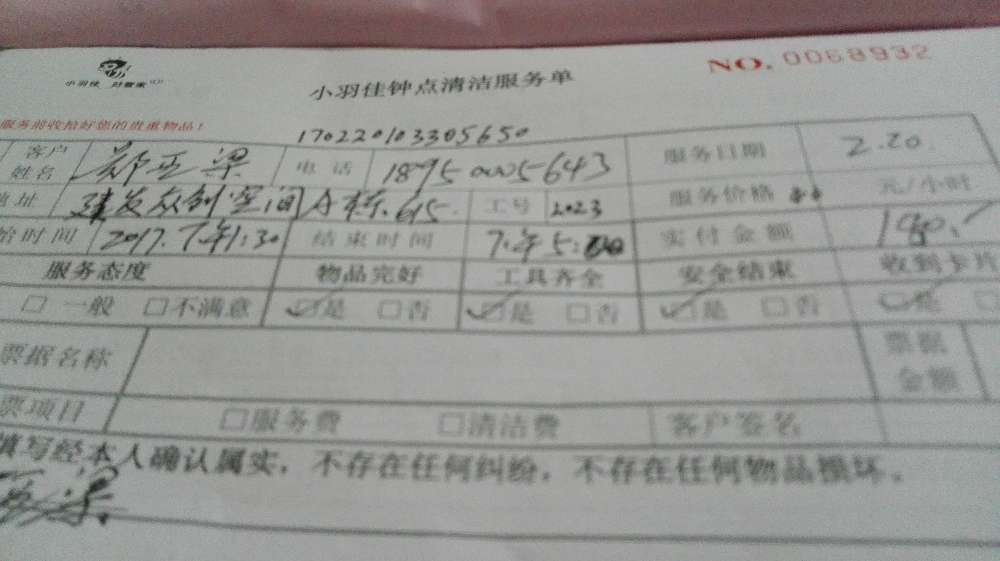 小羽佳 好管家
NO.0068932
小羽佳钟点清洁服务单
服务前收拾好您的贵重物品!
170220103305650
客户姓名 郑亚梁 电话 18950005643 服务日期 2.20
地址 建发众创空间A栋.615 工号 2023 服务价格 元/小时
始时间 2017.下午1:30 结束时间 下午5:00 实付金额
服务态度 物品完好 工具齐全 安全结束 收到卡片
□一般 □不满意 ☑是 □否 ☑是 □否 ☑是 □否 ☑是
票据名称 票据金额
票项目 □服务费 □清洁费 客户签名
填写经本人确认属实,不存在任何纠纷,不存在任何物品损坏。
亚梁